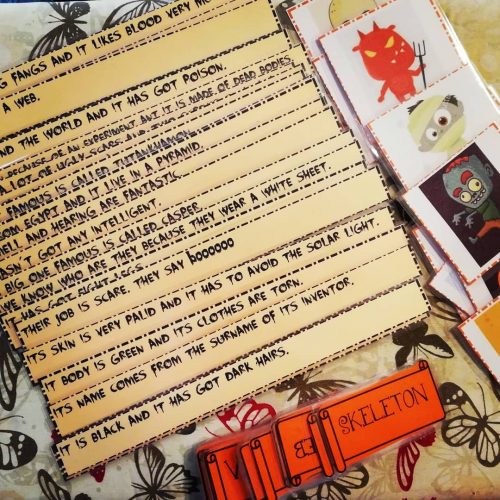 G FANGS AND IT LIKES BLOOD VERY MU
A WEB.
ND THE WORLD AND IT HAS GOT POISON.
BECAUSE OF AN EXPERIMENT AND IT IS MADE OF DEAD BODIES.
A LOT OF UGLY SCARS
FAMOUS IS CALLED TUTANKHAMON.
OM EGYPT AND IT LIVE IN A PYRAMID.
ELL AND HEARING ARE FANTASTIC.
ASN'T GOT ANY INTELLIGENT.
BIG ONE FAMOUS IS CALLED CASPER.
WE KNOW WHO ARE THEY BECAUSE THEY WEAR A WHITE SHEET.
HAS GOT EIGHT LEGS.
THEIR JOB IS SCARE. THEY SAY BOOOOOO
ITS SKIN IS VERY PALID AND IT HAS TO AVOID THE SOLAR LIGHT.
IT BODY IS GREEN AND ITS CLOTHES ARE TORN.
ITS NAME COMES FROM THE SURNAME OF ITS INVENTOR.
IT IS BLACK AND IT HAS GOT DARK HAIRS.
V
BE
SKELETON